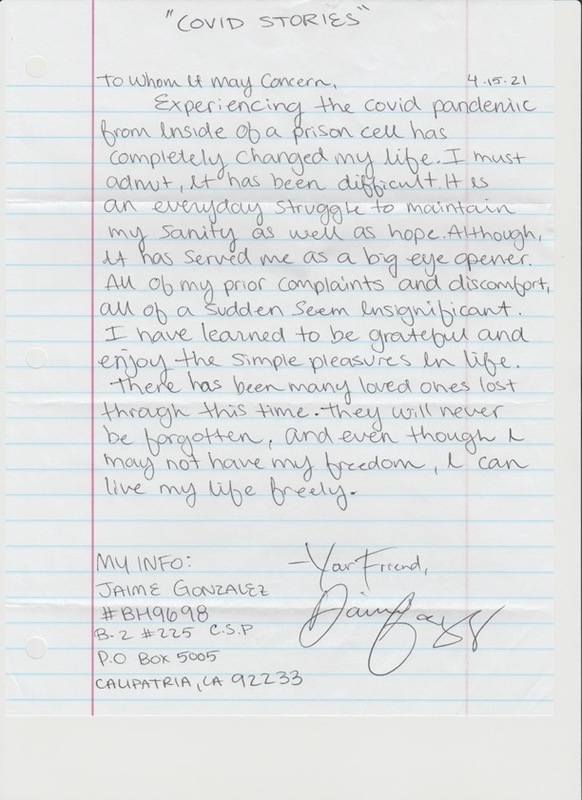 "COVID STORIES"
To Whom It May Concern, 4.15.21
Experiencing the covid pandemic
from inside of a prison cell has
completely changed my life. I must
admit, it has been difficult. It is
an everyday struggle to maintain
my sanity as well as hope. Although,
it has served me as a big eye opener.
All of my prior complaints and discomfort,
all of a sudden seem insignificant.
I have learned to be grateful and
enjoy the simple pleasures in life.
There has been many loved ones lost
through this time. They will never
be forgotten, and even though I
may not have my freedom, I can
live my life freely.
MY INFO: —Your Friend,
JAIME GONZALEZ
#BH9698
B-2 #225 C.S.P
P.O BOX 5005
CALIPATRIA, CA 92233